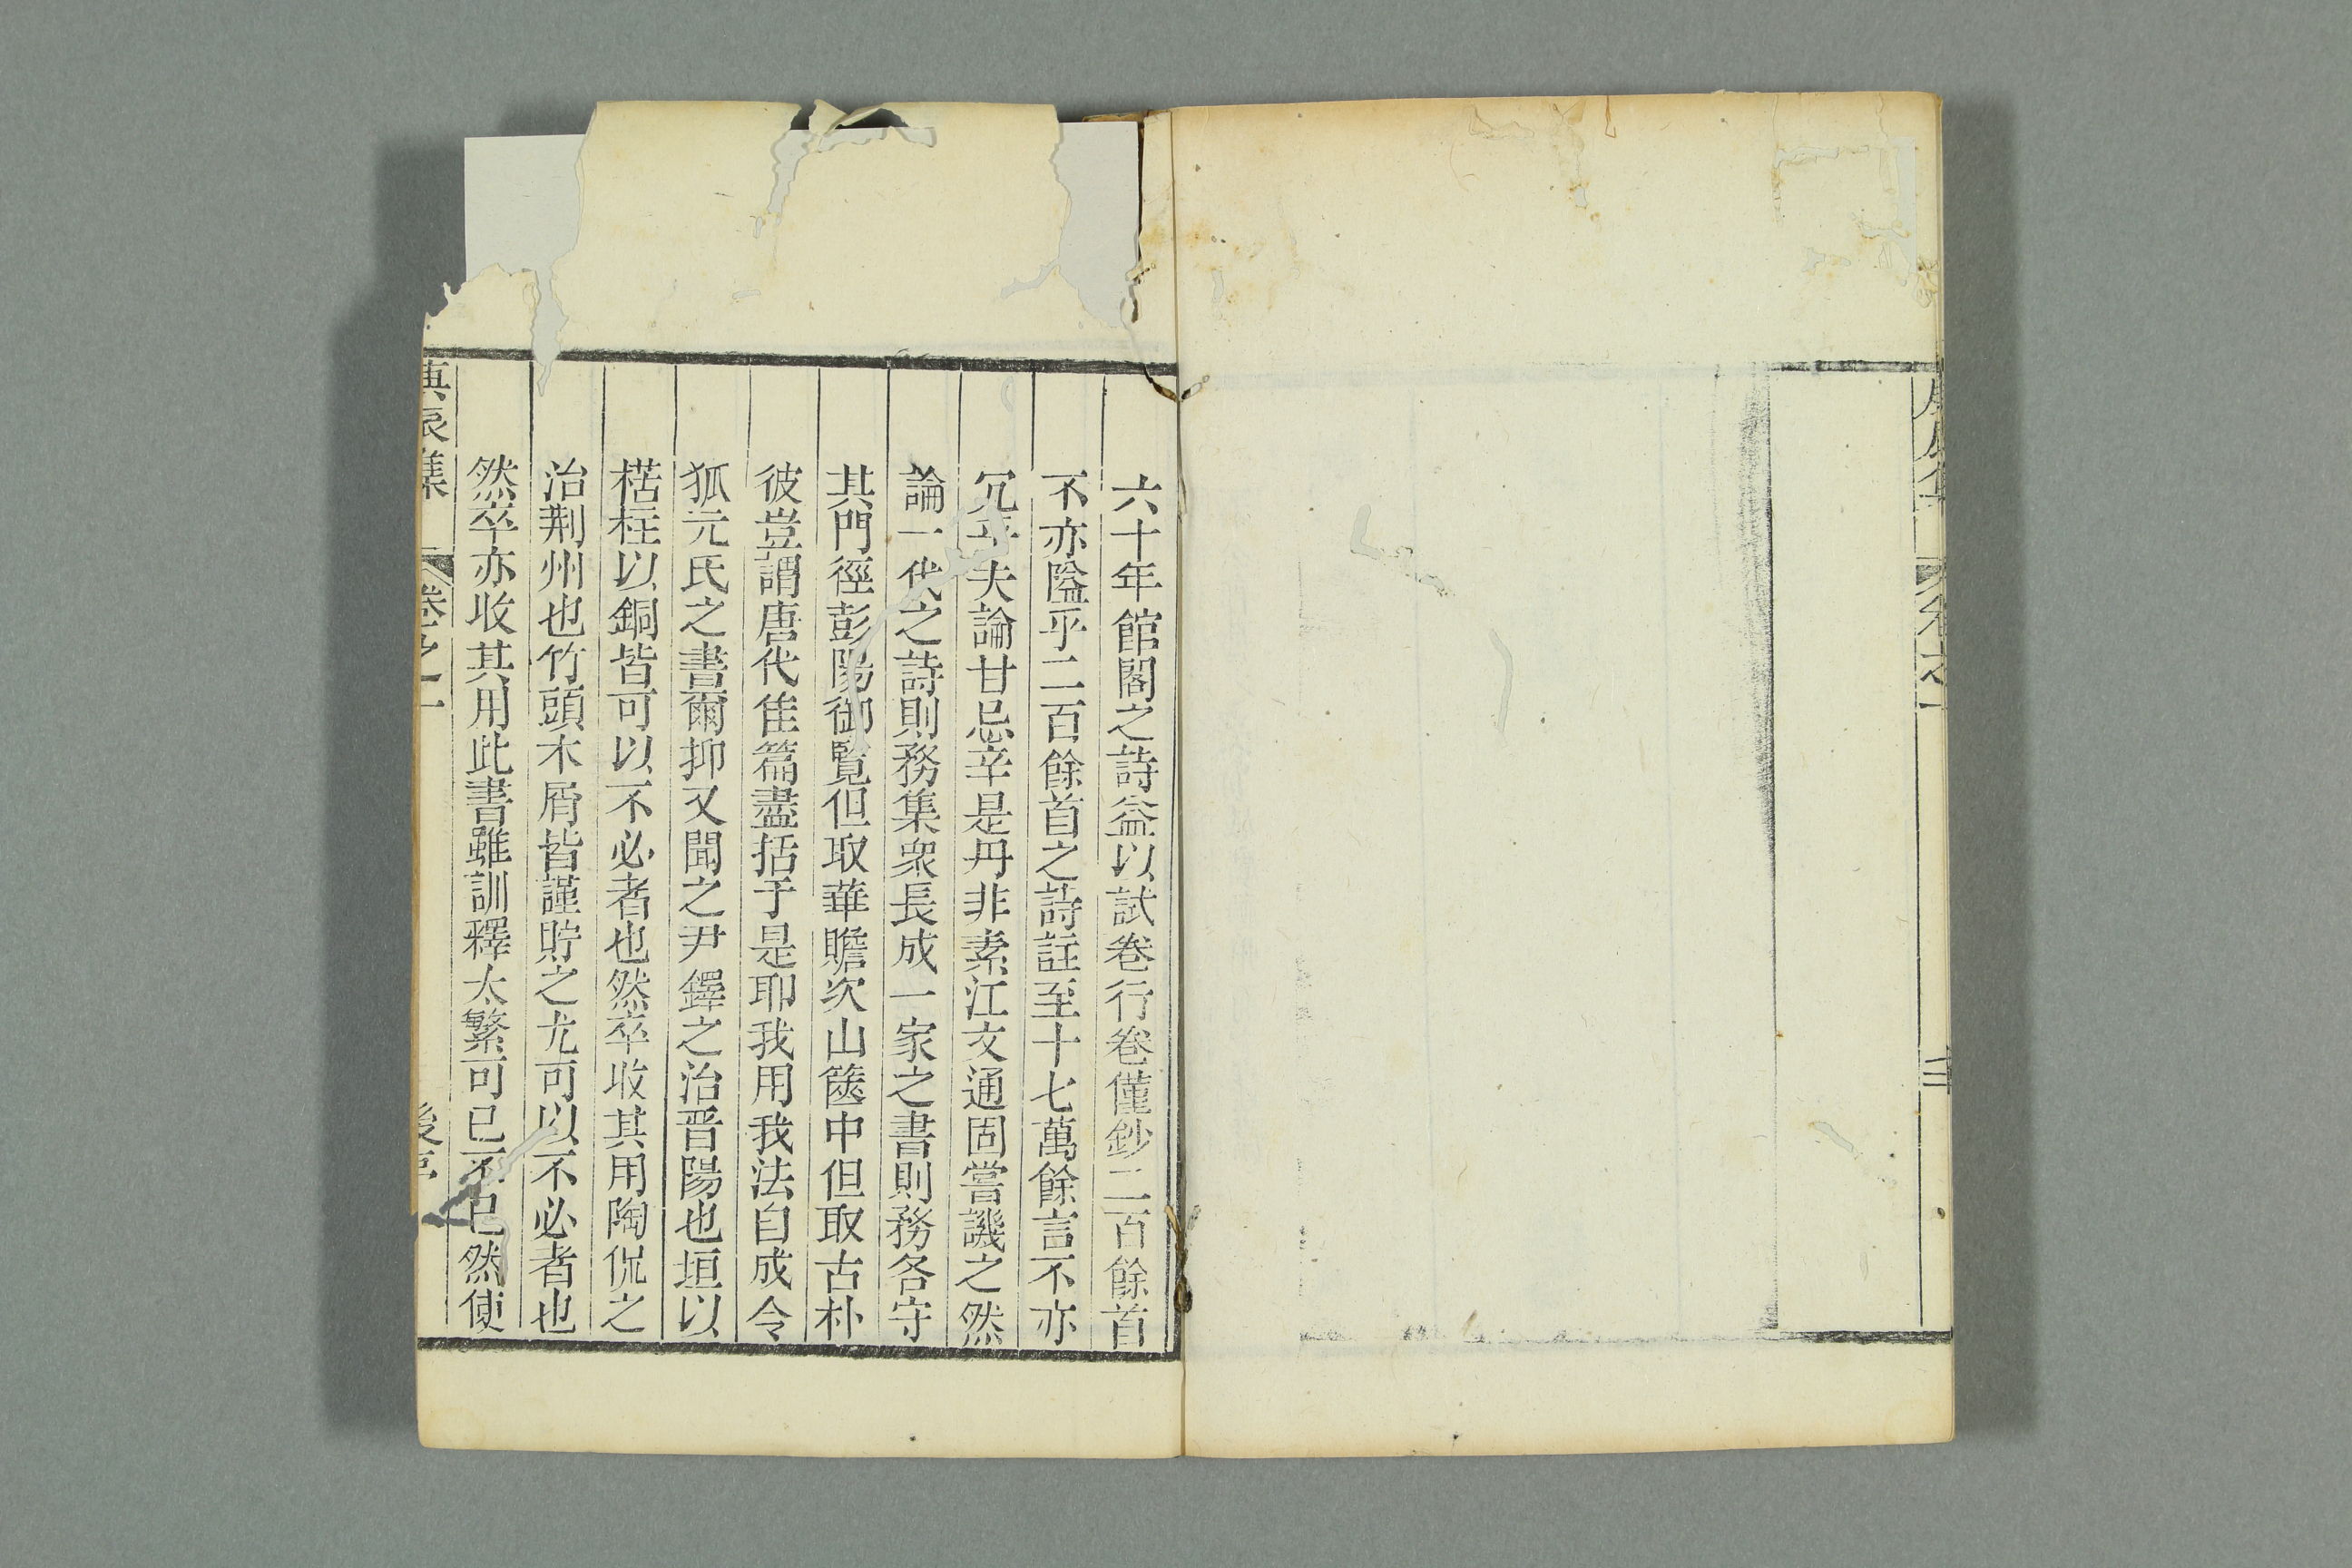 六十年館閣之詩益以試卷行卷僅鈔二百餘首
不亦隘乎二百餘首之詩註至十七萬餘言不亦
冗乎夫論甘忌辛是丹非素江文通固嘗譏之然
論一代之詩則務集衆長成一家之書則務各守
其門徑彭陽御覽但取華贍次山篋中但取古朴
彼豈謂唐代佳篇盡括于是耶我用我法自成令
狐元氏之書爾抑又聞之尹鐸之治晋陽也垣以
楛柱以銅皆可以不必者也然卒收其用陶侃之
治荆州也竹頭木屑皆謹貯之尤可以不必者也
然卒亦收其用此書雖訓釋太繁可已不已然使
辰集 卷之一 後序
二